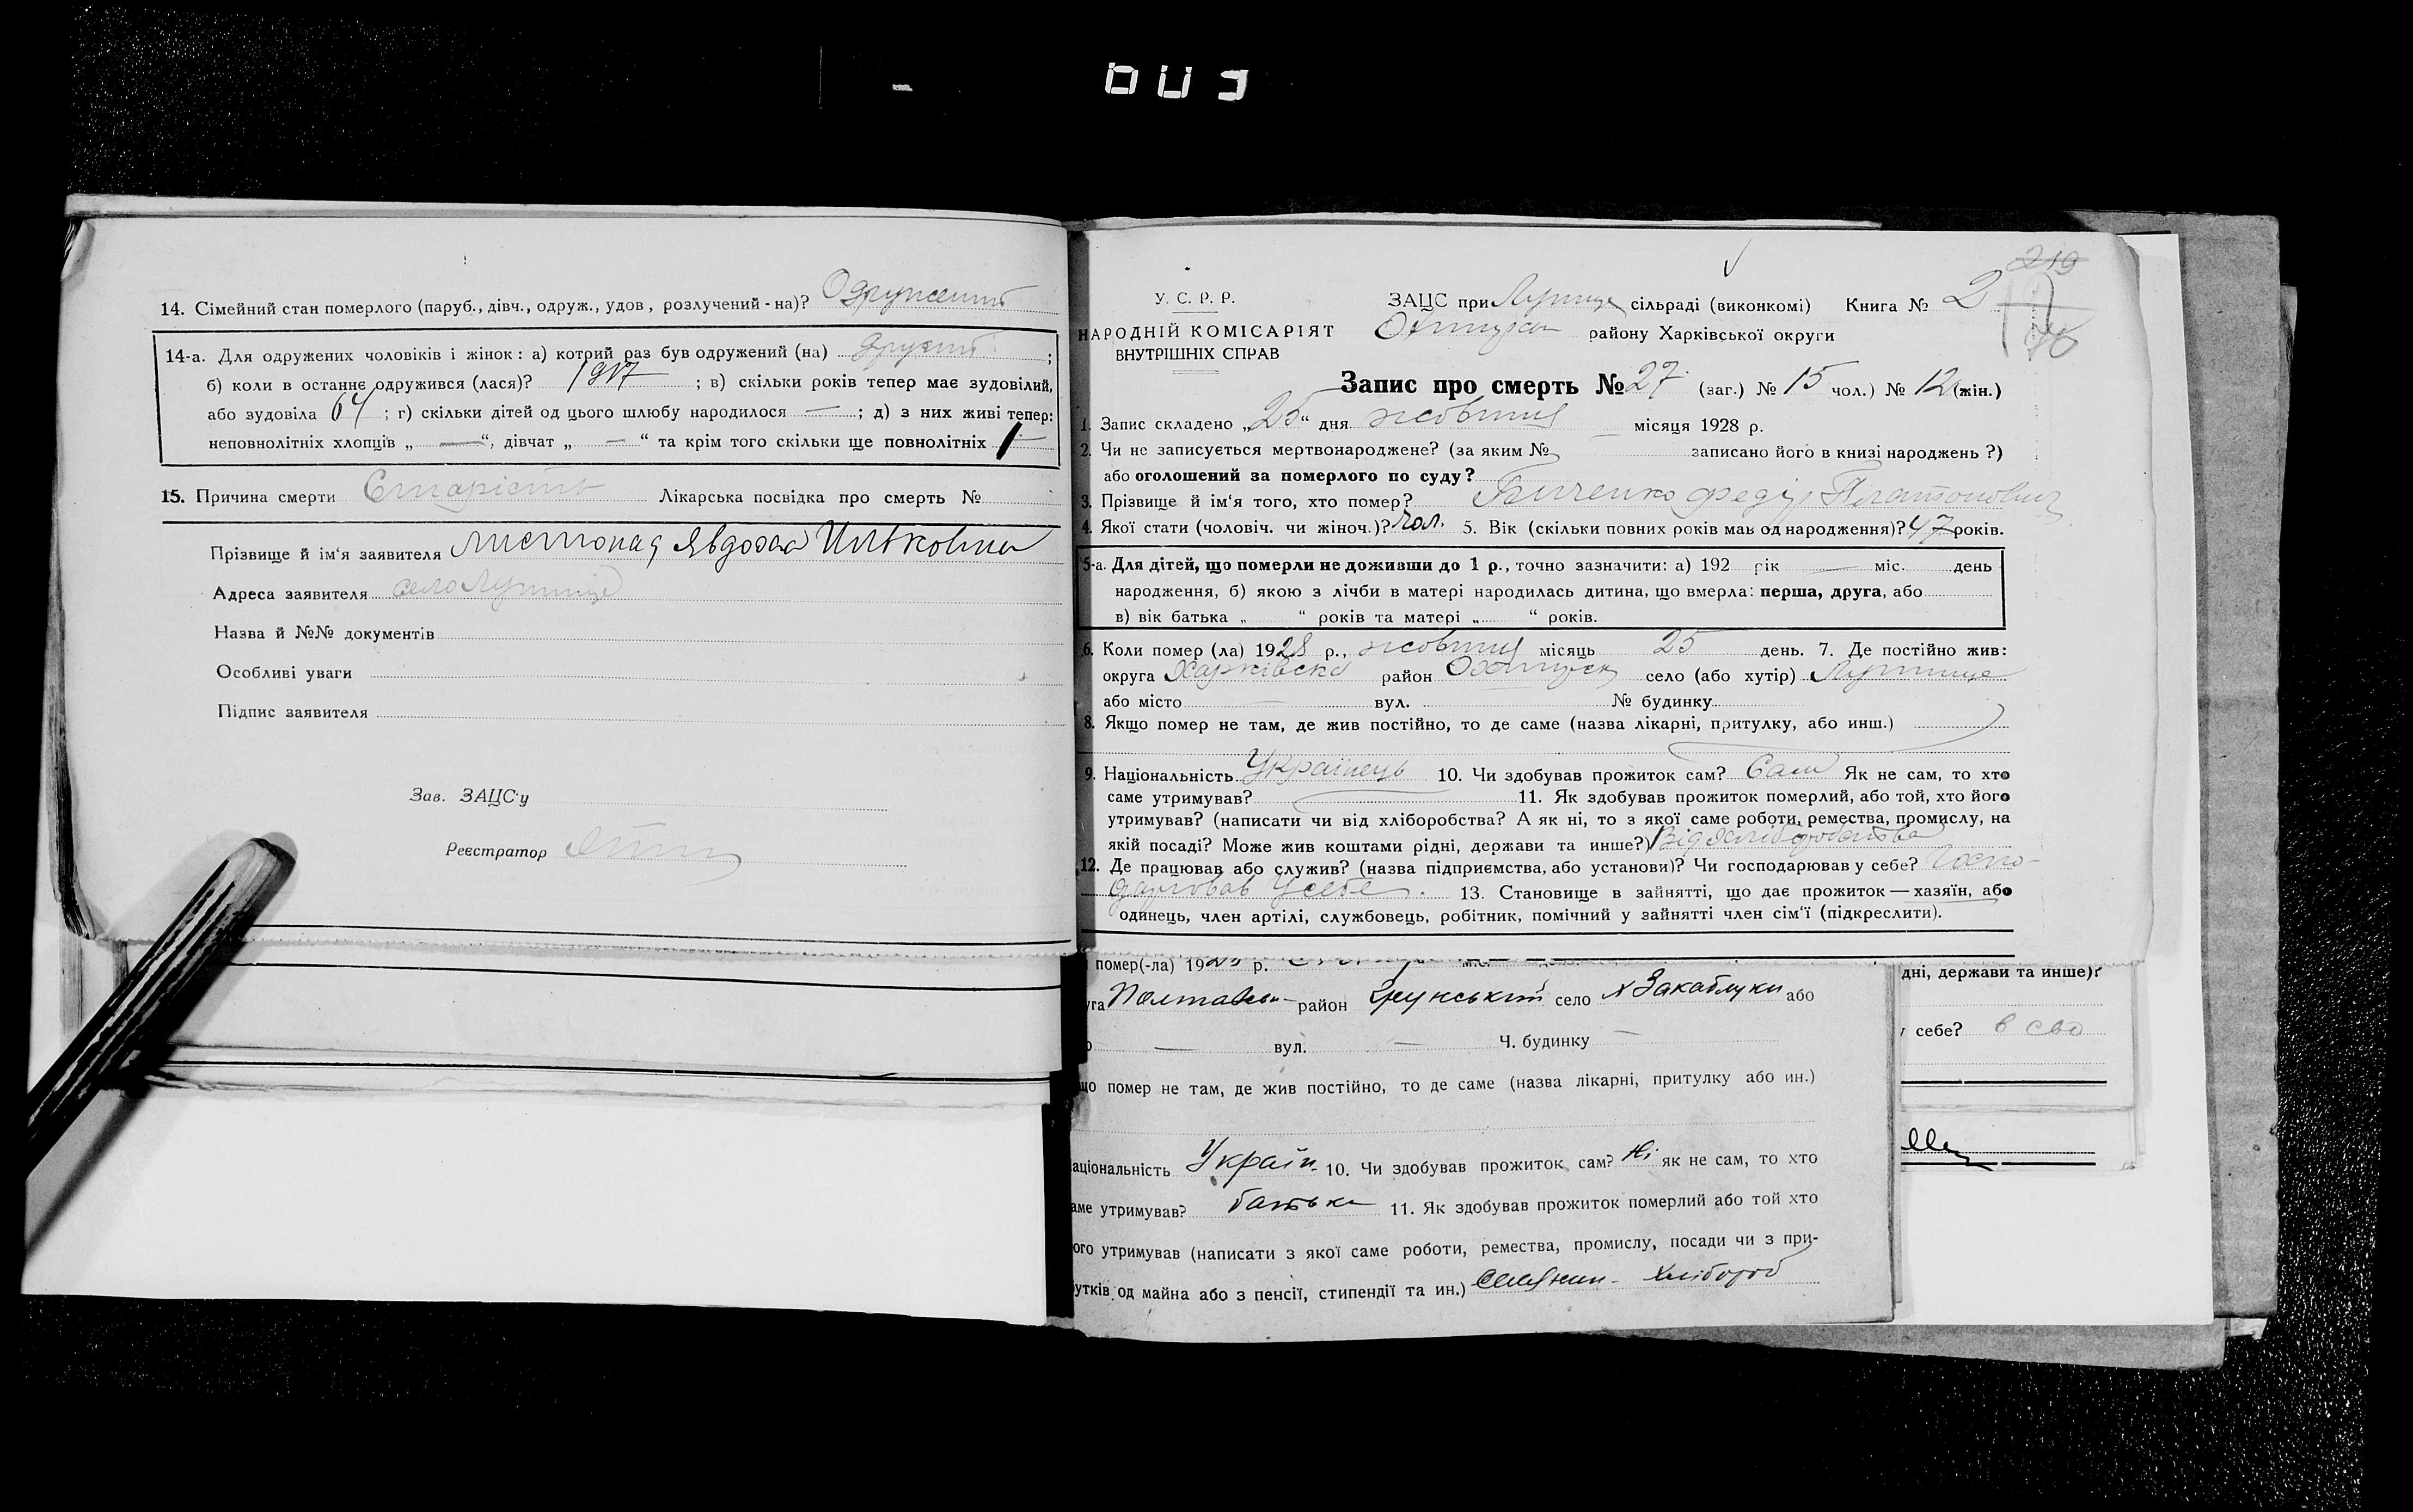 14. Сімейний стан померлого (паруб., дівч., одруж., удов, розлучений-на)? Одружений
14-а. Для одружених чоловіків і жінок: а) котрий раз був одружений (на) другий ;
б) коли в останнє одружився (лася)? 1917 ; в) скільки років тепер має зудовілий,
або зудовіла 64 ; г) скільки дітей од цього шлюбу народилося — ; д) з них живі тепер:
неповнолітніх хлопців „ — “, дівчат „ — “ та крім того скільки ще повнолітніх
15. Причина смерти Старість Лікарська посвідка про смерть №
Прізвище й ім'я заявителя Листопад Явдоха
Адреса заявителя село
Назва й №№ документів
Особливі уваги
Підпис заявителя
Зав. ЗАЦС'у
Реєстратор
219
У. С. Р. Р.
ЗАЦС при сільраді (виконкомі) Книга № 2
НАРОДНІЙ КОМІСАРІЯТ
ВНУТРІШНІХ СПРАВ
району Харківської округи
Запис про смерть № 27 (заг.) № 15 чол.) № 12 (жін.)
1. Запис складено „25“ дня жовтня місяця 1928 р.
2. Чи не записується мертвонароджене? (за яким № записано його в книзі народжень ?)
або оголошений за померлого по суду?
3. Прізвище й ім'я того, хто помер? Федір Платонович
4. Якої стати (чоловіч. чи жіноч.)? чол. 5. Вік (скільки повних років мав од народження)? 47 років.
5-а. Для дітей, що померли не доживши до 1 р., точно зазначити: а) 192 рік — міс. день
народження, б) якою з лічби в матері народилась дитина, що вмерла: перша, друга, або
в) вік батька „ “ років та матері „ “ років.
6. Коли помер (ла) 1928 р., жовтня місяць 25 день. 7. Де постійно жив:
округа Харківська район село (або хутір)
або місто вул. № будинку
8. Якщо помер не там, де жив постійно, то де саме (назва лікарні, притулку, або инш.)
9. Національність Українець 10. Чи здобував прожиток сам? Сам Як не сам, то хто
саме утримував? 11. Як здобував прожиток померлий, або той, хто його
утримував? (написати чи від хліборобства? А як ні, то з якої саме роботи, ремества, промислу, на
якій посаді? Може жив коштами рідні, держави та инше?) Від хліборобства
12. Де працював або служив? (назва підприємства, або установи)? Чи господарював у себе? Госпо-
дарював у себе. 13. Становище в зайнятті, що дає прожиток — хазяїн, або
одинець, член артілі, службовець, робітник, помічний у зайнятті член сім'ї (підкреслити).
помер(-ла) 192 р.
дні, держави та инше)?
Полтавськ район Грунський село х Закаблуки або
вул. — Ч. будинку —
у себе? в сво
що помер не там, де жив постійно, то де саме (назва лікарні, притулку або ин.)
аціональність Україн. 10. Чи здобував прожиток сам? Ні як не сам, то хто
аме утримував? батьки 11. Як здобував прожиток померлий або той хто
ого утримував (написати з якої саме роботи, ремества, промислу, посади чи з при-
утків од майна або з пенсії, стипендії та ин.) Селянин - хлібороб